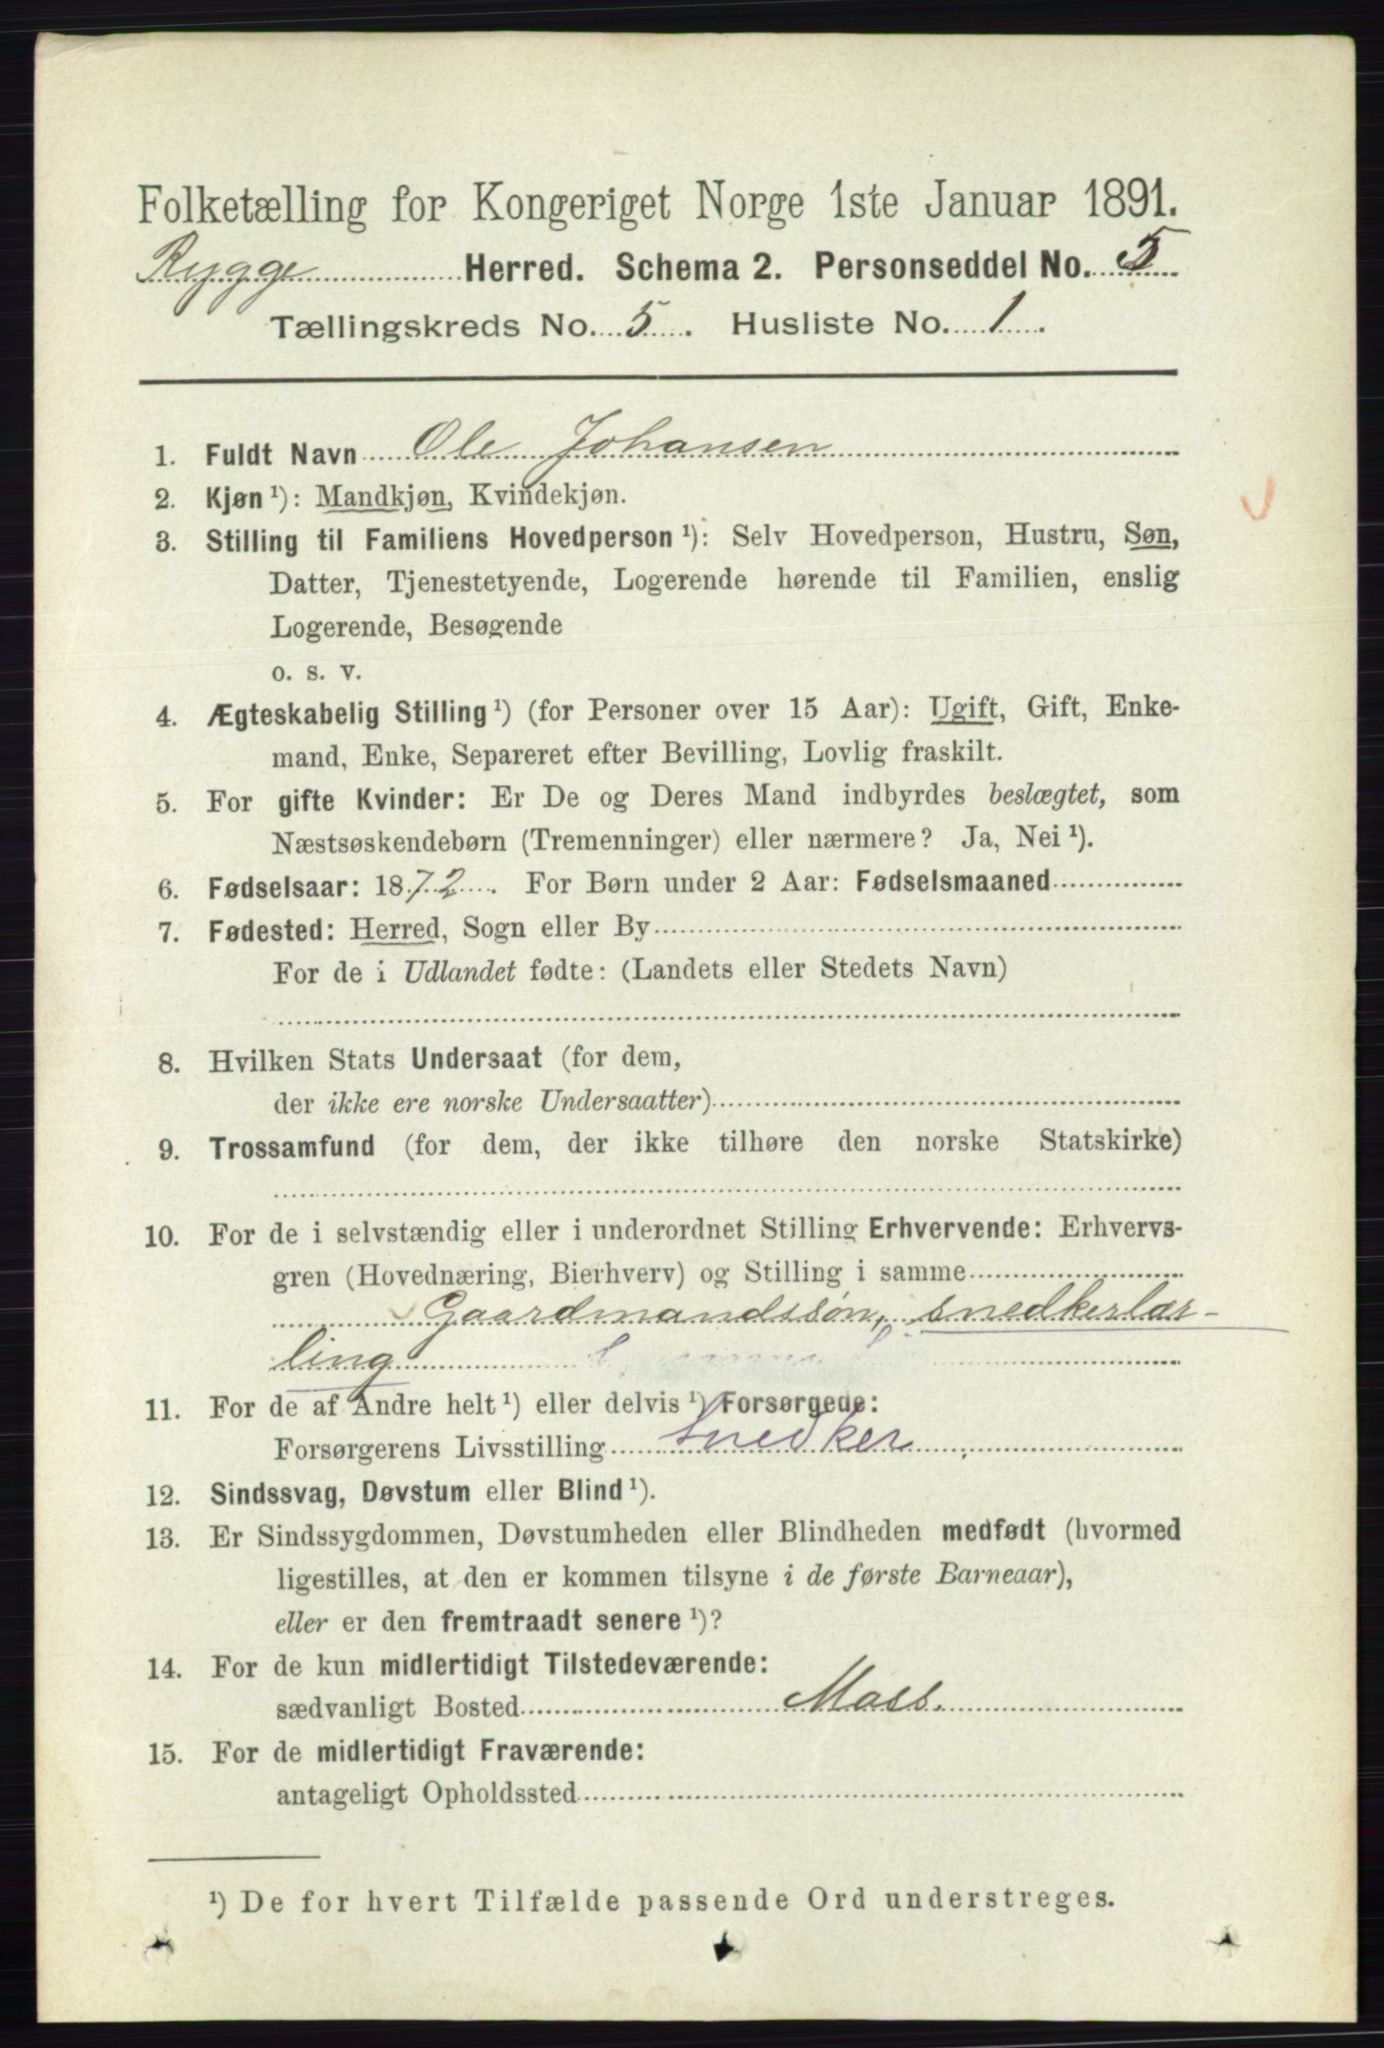 Folketælling for Kongeriget Norge 1ste Januar 1891.
Rygge Herred. Schema 2. Personseddel No. 5
Tællingskreds No. 5. Husliste No. 1.
1. Fuldt Navn Ole Johansen
2. Kjøn ¹): Mandkjøn, Kvindekjøn.
3. Stilling til Familiens Hovedperson ¹): Selv Hovedperson, Hustru, Søn,
Datter, Tjenestetyende, Logerende hørende til Familien, enslig
Logerende, Besøgende
o. s. v.
4. Ægteskabelig Stilling ¹) (for Personer over 15 Aar): Ugift, Gift, Enke-
mand, Enke, Separeret efter Bevilling, Lovlig fraskilt.
5. For gifte Kvinder: Er De og Deres Mand indbyrdes beslægtet, som
Næstsøskendebørn (Tremenninger) eller nærmere? Ja, Nei ¹).
6. Fødselsaar: 1872. For Børn under 2 Aar: Fødselsmaaned
7. Fødested: Herred, Sogn eller By
For de i Udlandet fødte: (Landets eller Stedets Navn)
8. Hvilken Stats Undersaat (for dem,
der ikke ere norske Undersaatter)
9. Trossamfund (for dem, der ikke tilhøre den norske Statskirke)
10. For de i selvstændig eller i underordnet Stilling Erhvervende: Erhvervs-
gren (Hovednæring, Bierhverv) og Stilling i samme
Gaardmandssøn, snedkerlær-
ling
11. For de af Andre helt ¹) eller delvis ¹) Forsørgede:
Forsørgerens Livsstilling Snedker
12. Sindssvag, Døvstum eller Blind ¹).
13. Er Sindssygdommen, Døvstumheden eller Blindheden medfødt (hvormed
ligestilles, at den er kommen tilsyne i de første Barneaar),
eller er den fremtraadt senere ¹)?
14. For de kun midlertidigt Tilstedeværende:
sædvanligt Bosted Moss.
15. For de midlertidigt Fraværende:
antageligt Opholdssted
¹) De for hvert Tilfælde passende Ord understreges.